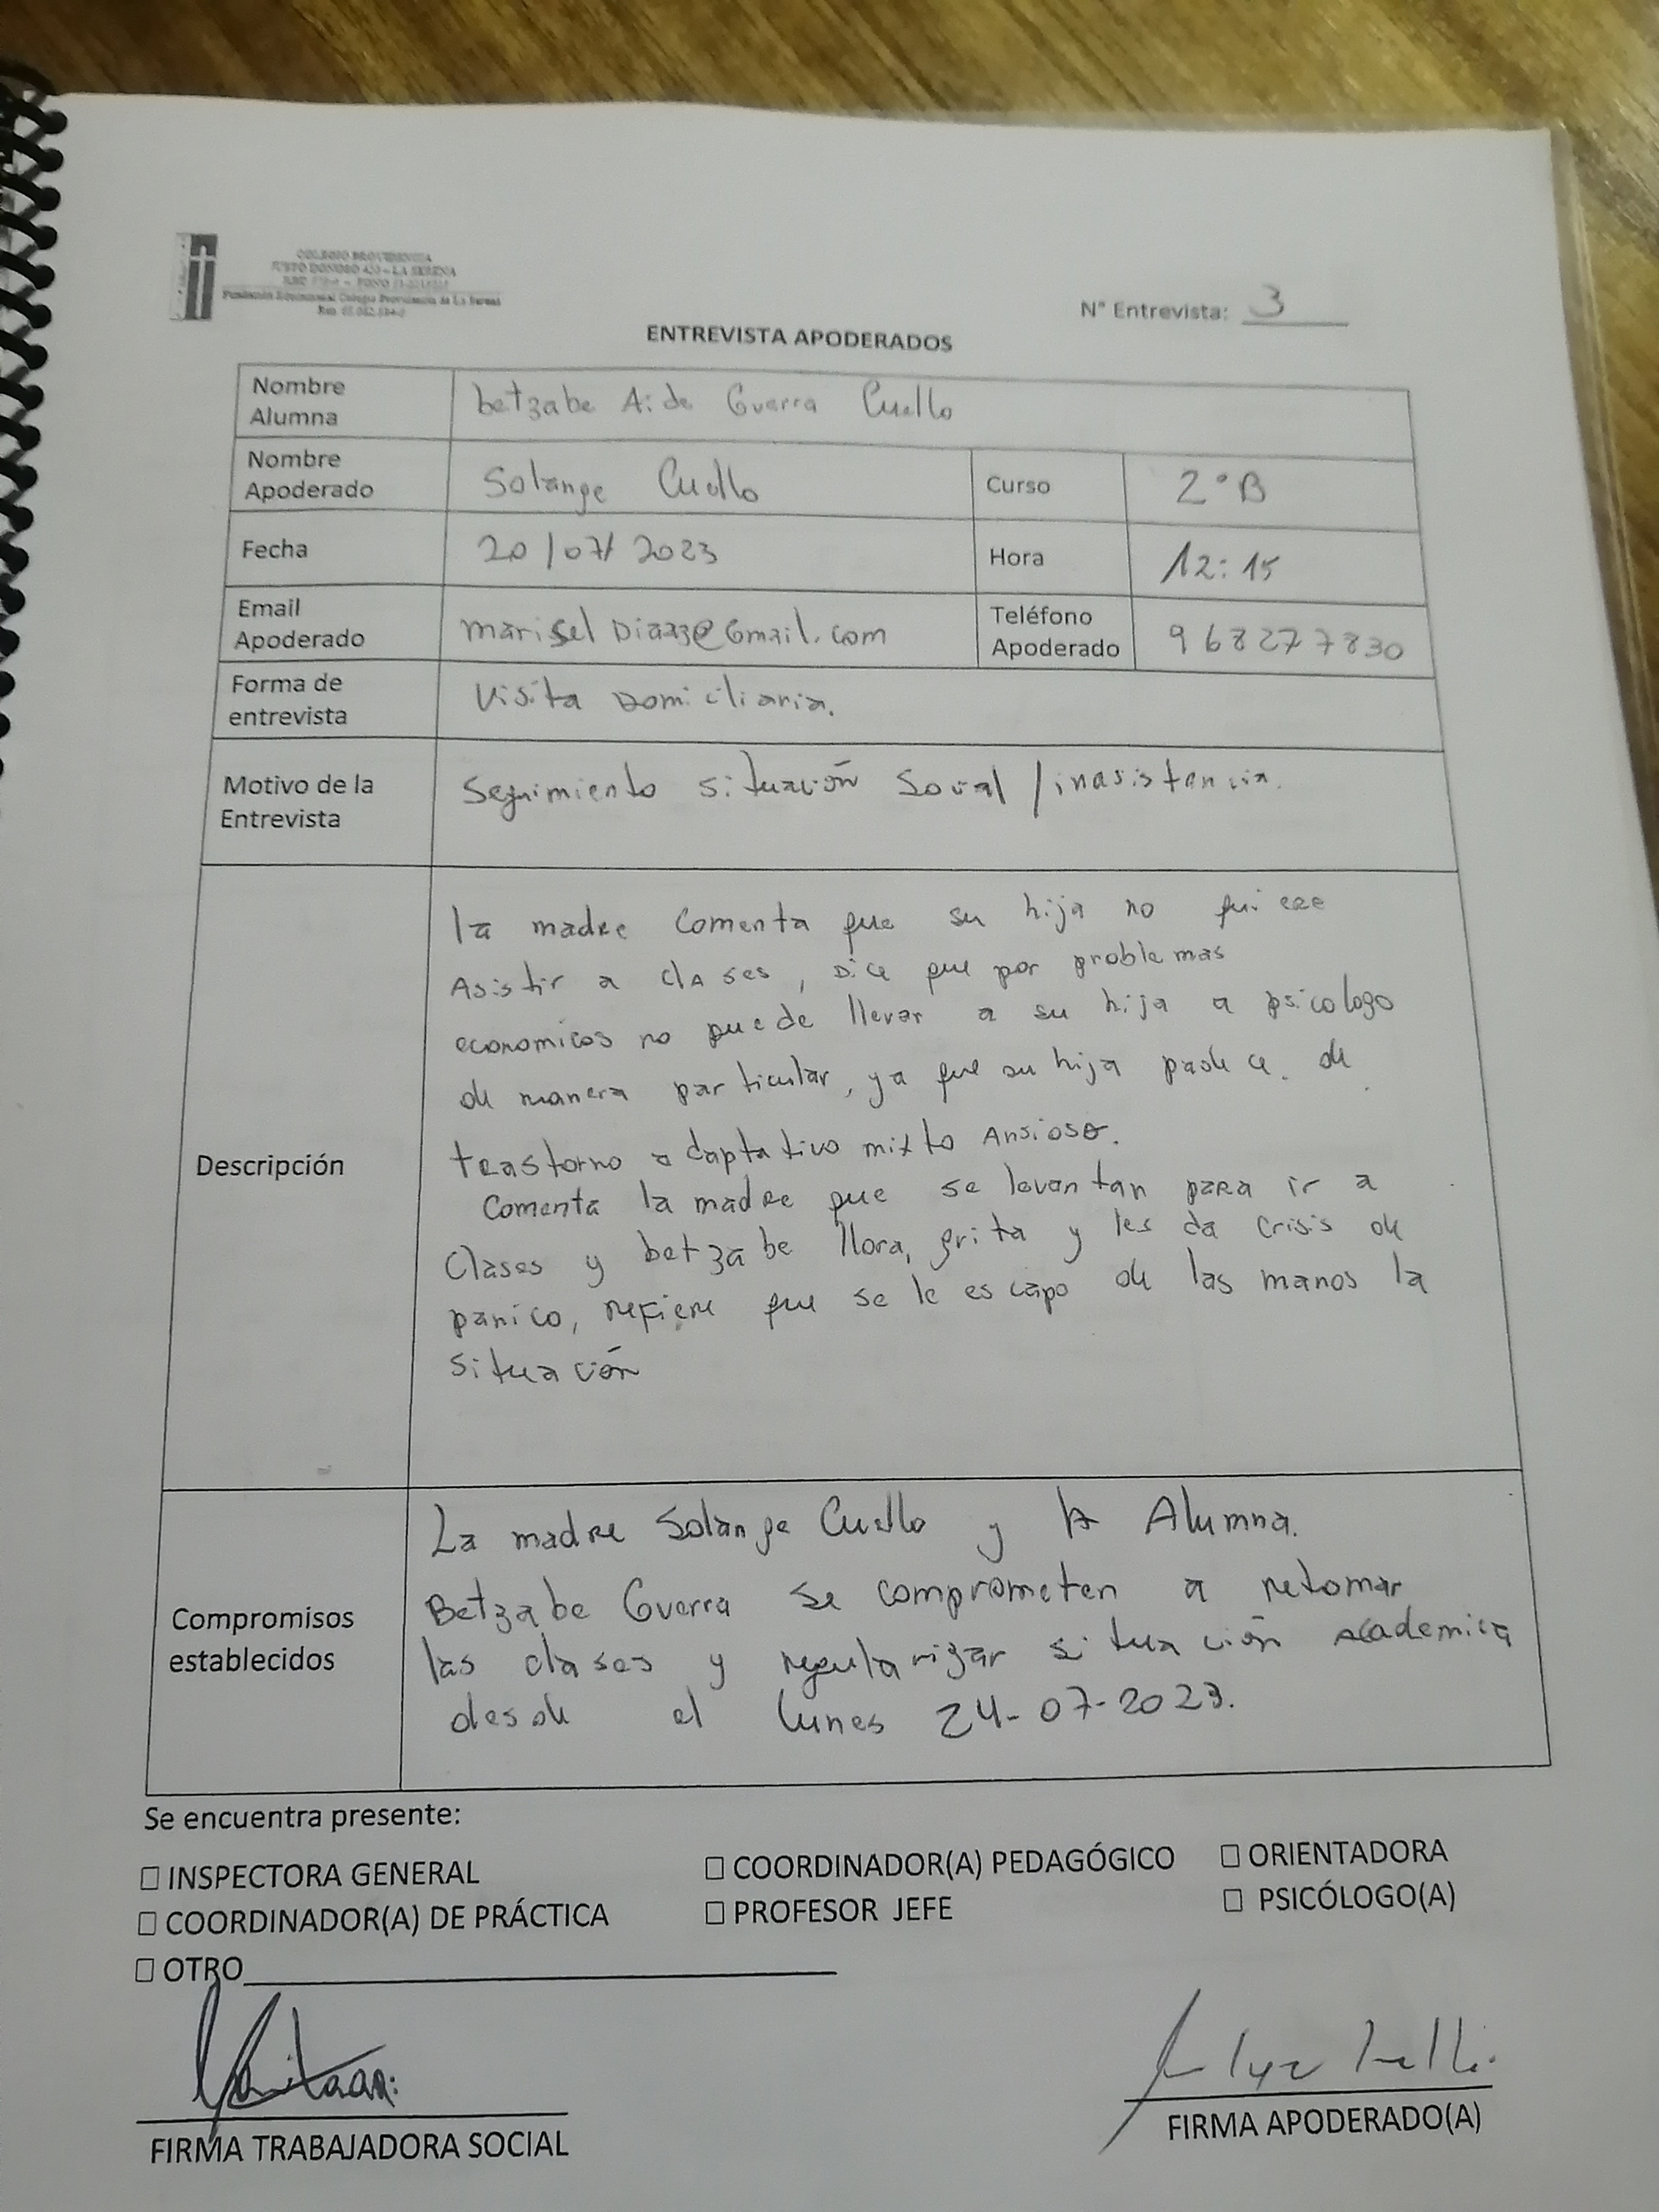 COLEGIO PROVIDENCIA
JUSTO DONOSO 420 - LA SERENA
Fundación Educacional Colegio Providencia de La Serena
N° Entrevista: 3
ENTREVISTA APODERADOS
Nombre Alumna betzabe Aida Guerra Cuello
Nombre Apoderado Solange Cuello Curso 2°B
Fecha 20/07/2023 Hora 12:15
Email Apoderado marisel Diaaz@Gmail.com Teléfono Apoderado 968277830
Forma de entrevista Visita Domiciliaria.
Motivo de la Entrevista Seguimiento situación Social / inasistencia.
Descripción
la madre comenta que su hija no quiere
Asistir a clAses, Dice que por problemas
economicos no puede llevar a su hija a psicologo
de manera particular, ya que su hija padece. de
trastorno adaptativo mixto Ansioso.
Comenta la madre que se levantan para ir a
Clases y betzabe llora, grita y les da crisis de
panico, refiere que se le escapo de las manos la
situación
Compromisos establecidos
La madre Solange Cuello y la Alumna.
Betzabe Guerra se comprometen a retomar
las clases y regularizar situación academica
desde el lunes 24-07-2023.
Se encuentra presente:
☐ INSPECTORA GENERAL ☐ COORDINADOR(A) PEDAGÓGICO ☐ ORIENTADORA
☐ COORDINADOR(A) DE PRÁCTICA ☐ PROFESOR JEFE ☐ PSICÓLOGO(A)
☐ OTRO
FIRMA TRABAJADORA SOCIAL FIRMA APODERADO(A)